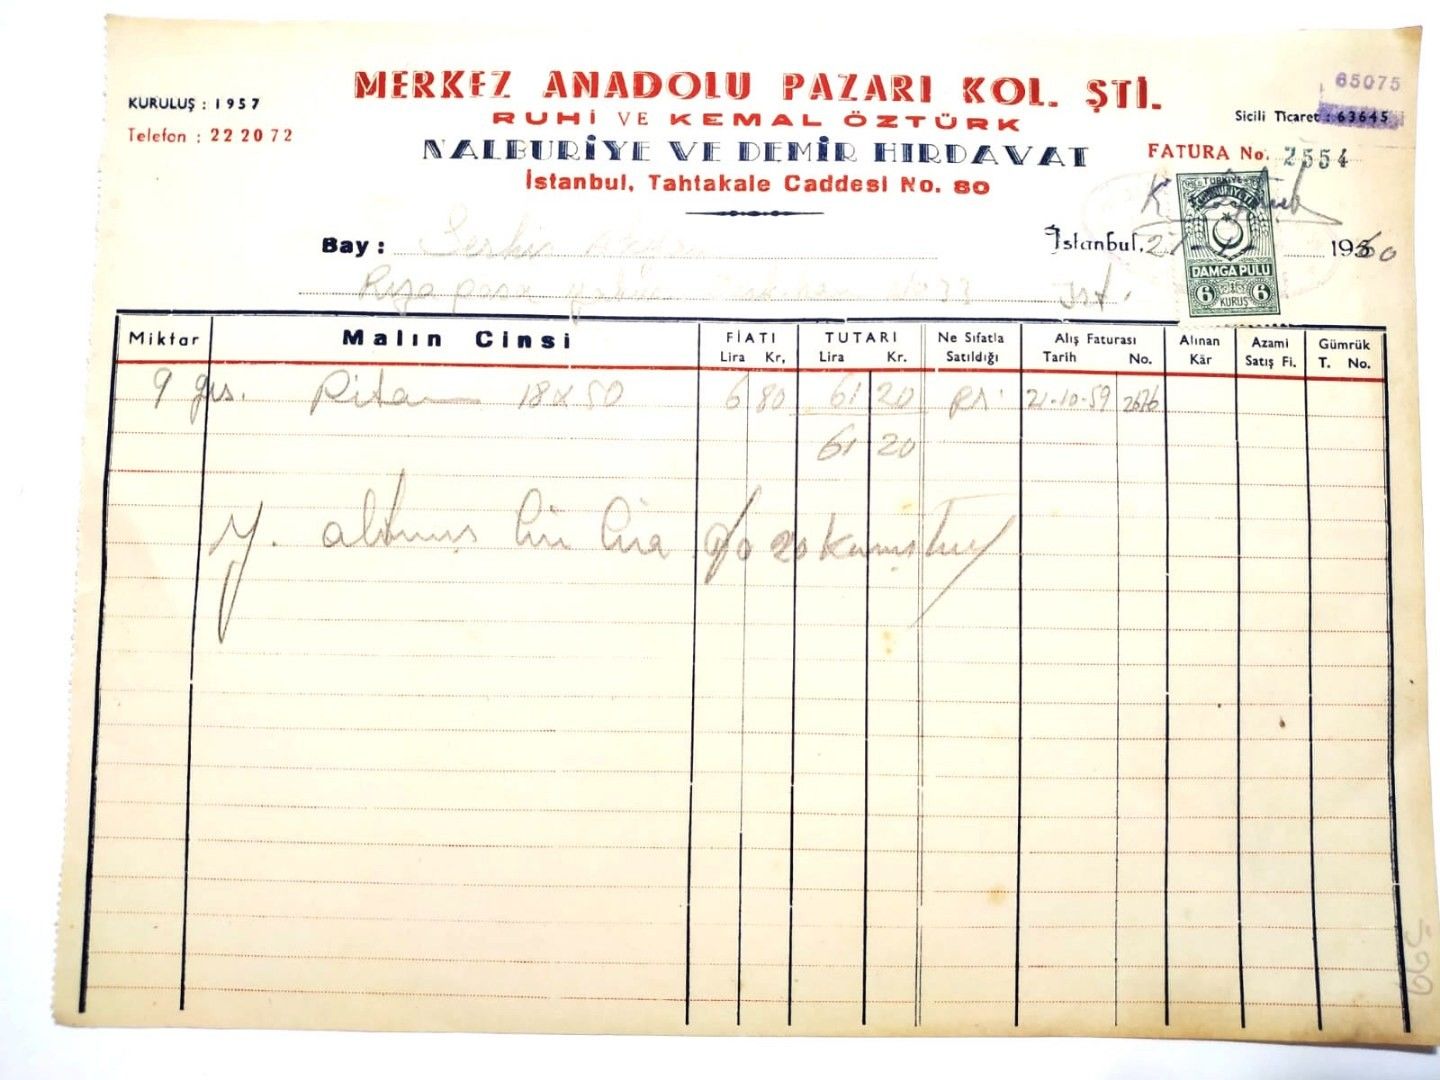 MERKEZ ANADOLU PAZARI KOL. ŞTİ.
65075
KURULUŞ : 1957
Sicili Ticaret : 63645
RUHİ VE KEMAL ÖZTÜRK
Telefon : 22 20 72
NALBURİYE VE DEMİR HIRDAVAT
FATURA No. 2554
İstanbul, Tahtakale Caddesi No. 80
TÜRKİYE CUMHURİYETİ
Bay :
İstanbul, 1960
DAMGA PULU
6 KURUŞ 6
Rıza paşa No 33 İst.
Miktar Malın Cinsi FİATI Lira Kr. TUTARI Lira Kr. Ne Sıfatla Satıldığı Alış Faturası Tarih No. Alınan Kâr Azami Satış Fi. Gümrük T. No.
9 grs. 18 x 50 6 80 61 20 21-10-59 2676
61 20
Y. altmış bir lira 20 kuruştur